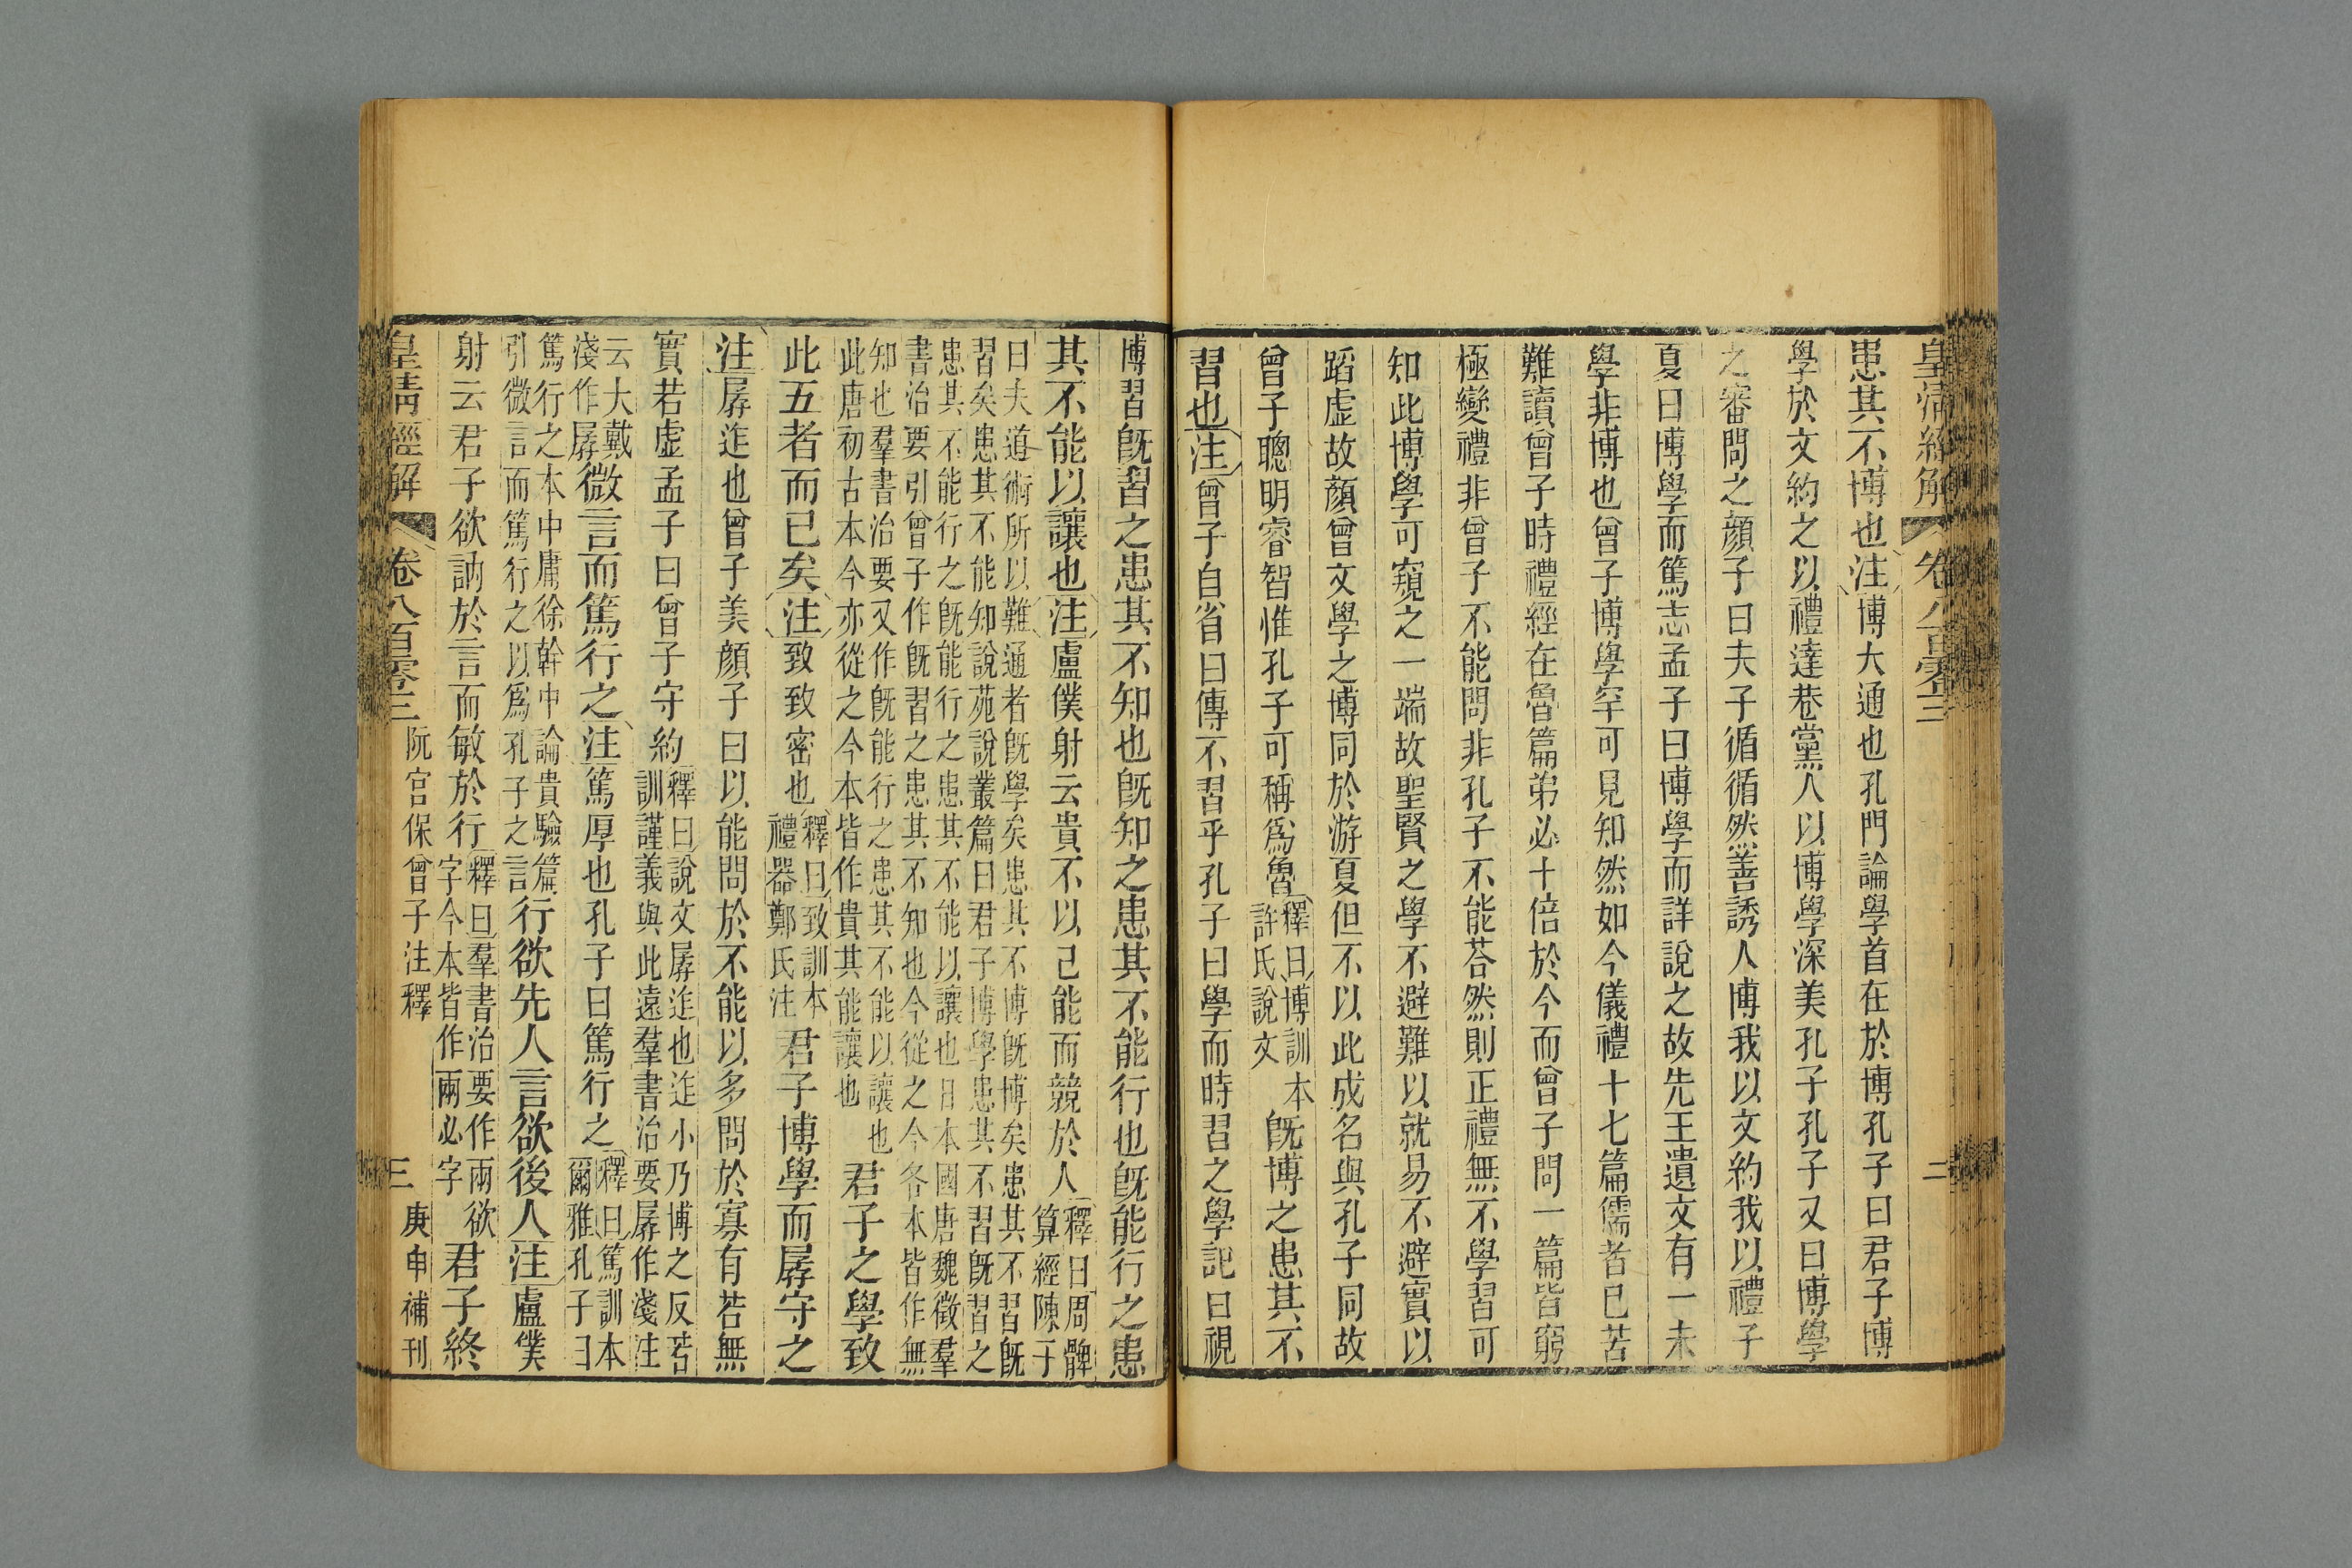 皇清經解 卷八百零三 二
患其不博也注博大通也孔門論學首在於博孔子曰君子博
學於文約之以禮達巷黨人以博學深美孔子孔子又曰博學
之審問之顏子曰夫子循循然善誘人博我以文約我以禮子
夏曰博學而篤志孟子曰博學而詳說之故先王遺文有一未
學非博也曾子博學罕可見知然如今儀禮十七篇儒者已苦
難讀曾子時禮經在魯篇弟必十倍於今而曾子問一篇皆窮
極變禮非曾子不能問非孔子不能荅然則正禮無不學習可
知此博學可窺之一端故聖賢之學不避難以就易不避實以
蹈虛故顏曾文學之博同於游夏但不以此成名與孔子同故
曾子聰明睿智惟孔子可稱為魯釋曰博訓本
許氏說文
既博之患其不
習也注曾子自省曰傳不習乎孔子曰學而時習之學記曰視
博習既習之患其不知也既知之患其不能行也既能行之患
其不能以讓也注盧僕射云貴不以己能而競於人釋曰周髀
算經陳子
曰夫道術所以難通者既學矣患其不博既博矣患其不習既
習矣患其不能知說苑說叢篇曰君子博學患其不習既習之
患其不能行之既能行之患其不能以讓也日本國唐魏徵羣
書治要引曾子作既習之患其不知也今從之今各本皆作無
知也羣書治要又作既能行之患其不能以讓也
此唐初古本今亦從之今本皆作貴其能讓也
君子之學致
此五者而已矣注致致密也釋曰致訓本
禮器鄭氏注
君子博學而孱守之
注孱迮也曾子美顏子曰以能問於不能以多問於寡有若無
實若虛孟子曰曾子守約釋曰說文孱迮也迮小乃博之反若
訓謹義與此遠羣書治要孱作淺注
云大戴
淺作孱
微言而篤行之注篤厚也孔子曰篤行之釋曰篤訓本
爾雅孔子曰
篤行之本中庸徐幹中論貴驗篇
引微言而篤行之以為孔子之言
行欲先人言欲後人注盧僕
射云君子欲訥於言而敏於行釋曰羣書治要作兩欲
字今本皆作兩必字
君子終
皇清經解 卷八百零三 阮宮保曾子注釋 三 庚申補刊